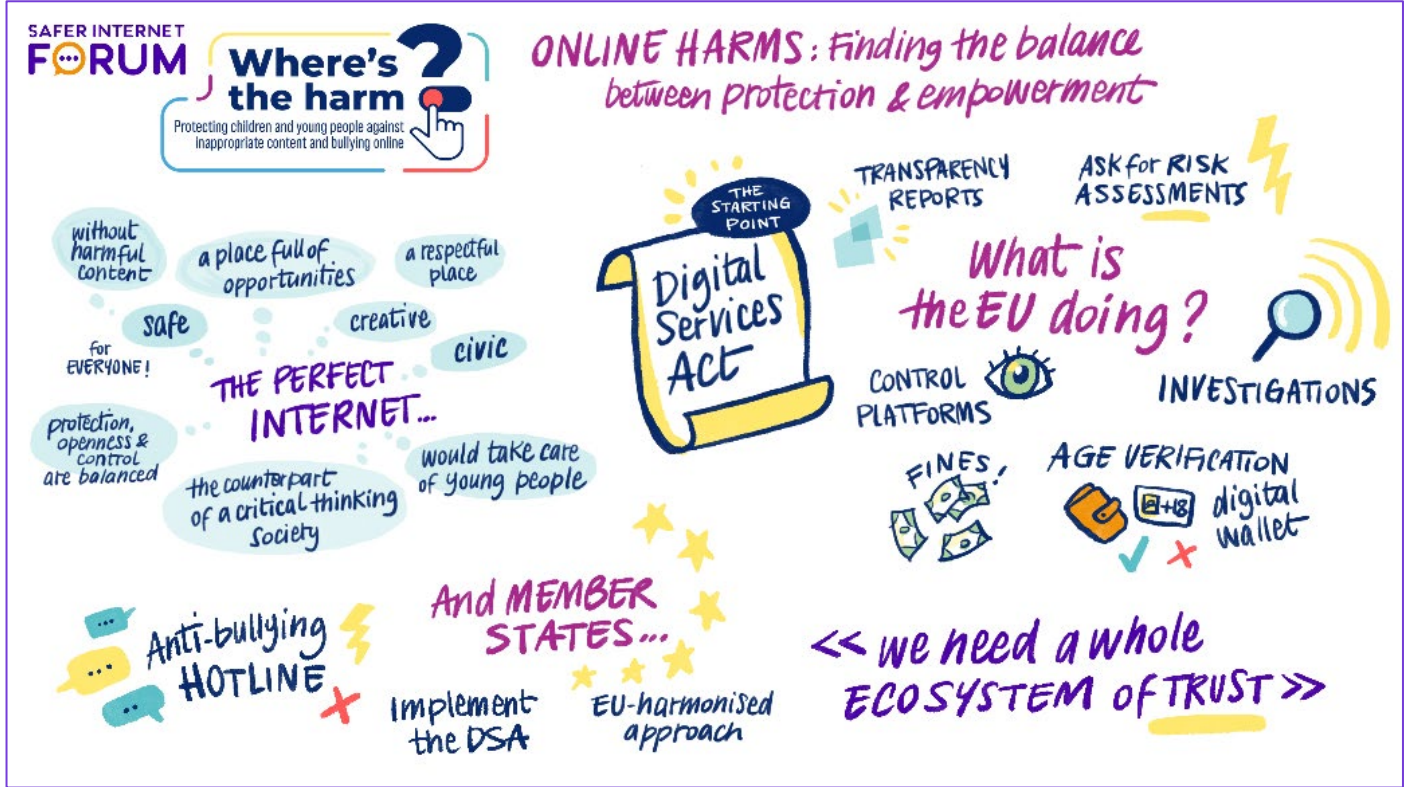 SAFER INTERNET
FORUM
Where's
the harm ?
Protecting children and young people against
inappropriate content and bullying online
ONLINE HARMS: Finding the balance
between protection & empowerment
without
harmful
content
a place full of
opportunities
a respectful
place
safe
creative
civic
for
EVERYONE!
THE PERFECT
INTERNET...
protection,
openness &
control
are balanced
the counterpart
of a critical thinking
society
would take care
of young people
THE
STARTING
POINT
Digital
Services
Act
TRANSPARENCY
REPORTS
ASK for RISK
ASSESSMENTS
What is
the EU doing?
CONTROL
PLATFORMS
INVESTIGATIONS
FINES!
AGE VERIFICATION
+18
digital
wallet
And MEMBER
STATES...
Anti-bullying
HOTLINE
Implement
the DSA
EU-harmonised
approach
<< we need a whole
ECOSYSTEM of TRUST >>